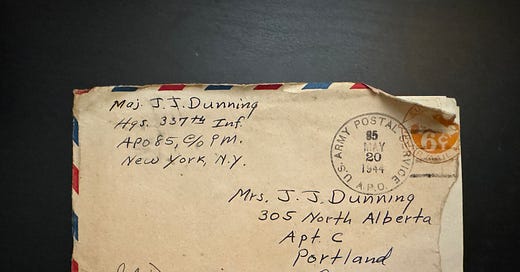 Maj. J. J. Dunning
Hqs. 337th Inf.
APO 85, C/o P.M.
New York, N.Y.
U.S. ARMY POSTAL SERVICE
85
MAY
20
1944
A.P.O.
6¢
Mrs. J. J. Dunning
305 North Alberta
Apt. C
Portland